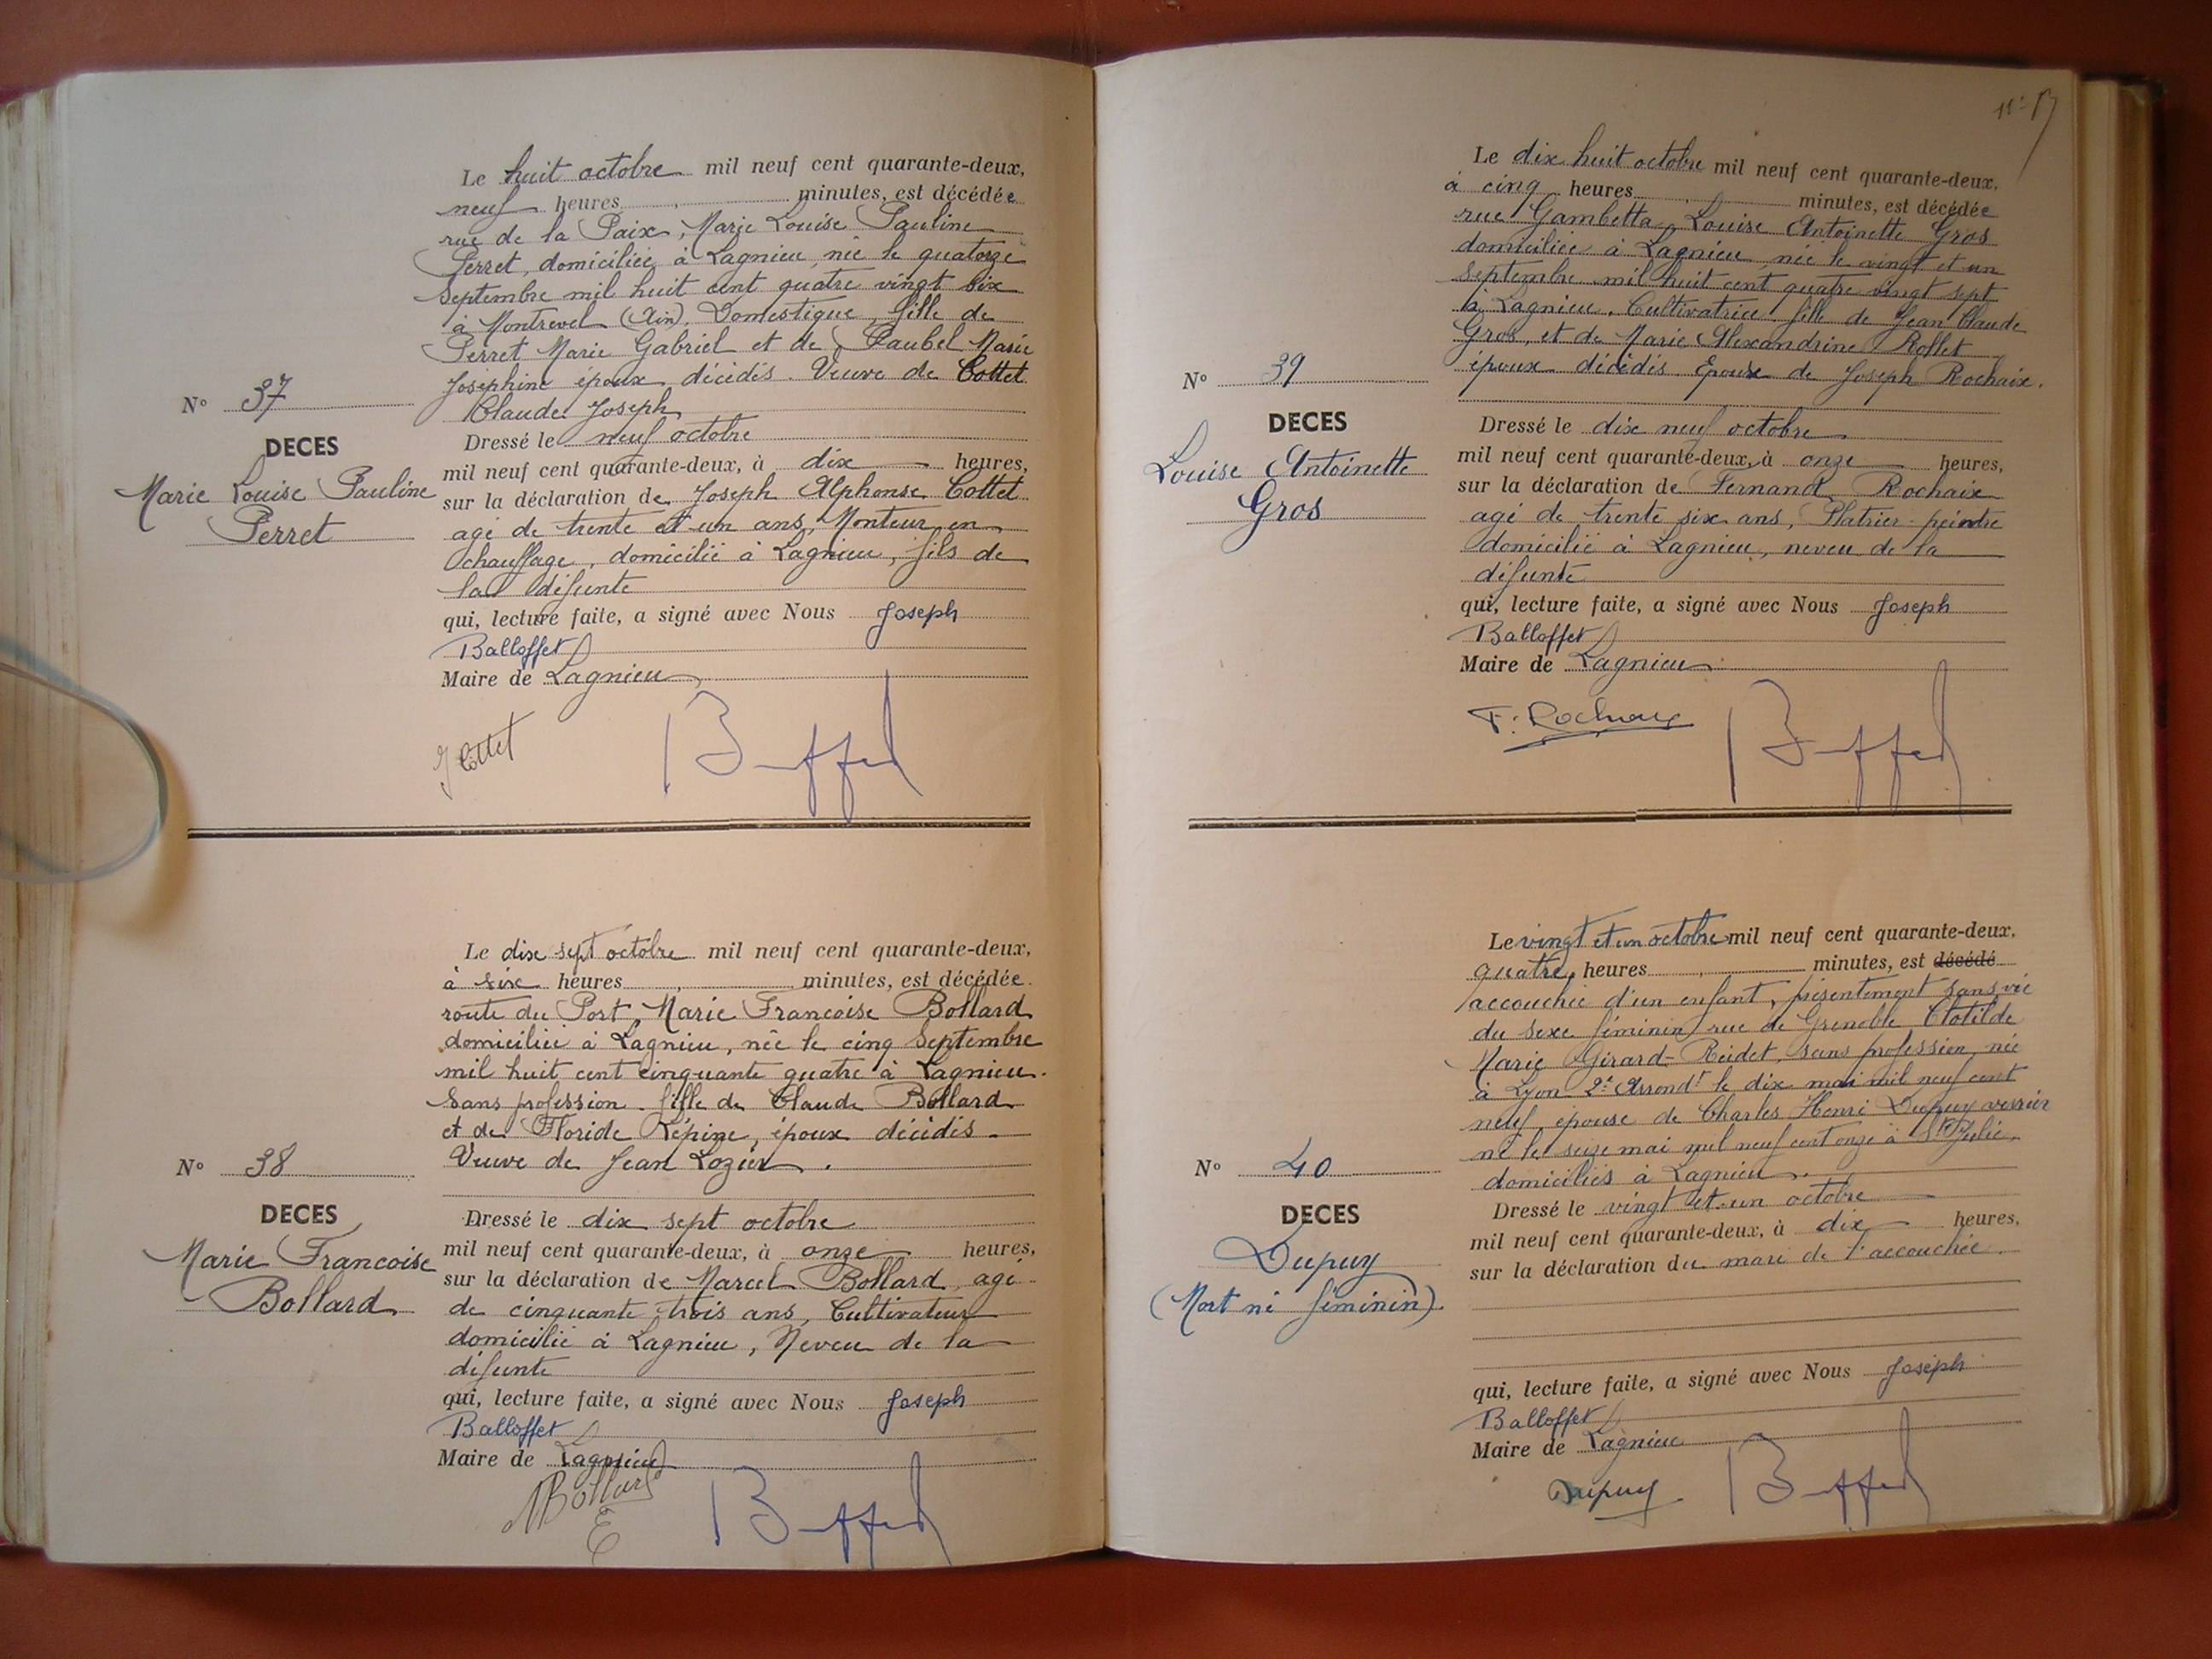 Le huit octobre mil neuf cent quarante-deux,
neuf heures minutes, est décédée
rue de la Paix, Marie Louise Pauline
Perret, domiciliée à Lagnieu, née le quatorze
Septembre mil huit cent quatre vingt six
à Montrevel (Ain). Domestique, fille de
Perret Marie Gabriel et de Paubel Marie
Joséphine époux décédés. Veuve de Cottet
Claude Joseph
N° 37
DECES
Marie Louise Pauline
Perret
Dressé le neuf octobre
mil neuf cent quarante-deux, à dix heures,
sur la déclaration de Joseph Alphonse Cottet
agé de trente et un ans, Monteur en
chauffage, domicilié à Lagnieu, fils de
la défunte
qui, lecture faite, a signé avec Nous Joseph
Balloffet
Maire de Lagnieu
J Cottet
Le dix sept octobre mil neuf cent quarante-deux,
à six heures minutes, est décédée
route du Port, Marie Francoise Bollard
domiciliée à Lagnieu, née le cinq Septembre
mil huit cent cinquante quatre à Lagnieu.
Sans profession. fille de Claude Bollard
et de Floride Lépine, époux décédés.
Veuve de Jean Lozier.
N° 38
DECES
Marie Francoise
Bollard
Dressé le dix sept octobre
mil neuf cent quarante-deux, à onze heures,
sur la déclaration de Marcel Bollard, agé
de cinquante trois ans, Cultivateur
domicilié à Lagnieu, Neveu de la
défunte
qui, lecture faite, a signé avec Nous Joseph
Balloffet
Maire de Lagnieu
MBollard
Le dix huit octobre mil neuf cent quarante-deux,
à cinq heures minutes, est décédée
rue Gambetta, Louise Antoinette Gros
domiciliée à Lagnieu née le vingt et un
Septembre mil huit cent quatre vingt sept
à Lagnieu. Cultivatrice. fille de Jean Claude
Gros, et de Marie Alexandrine Rollet
époux décédés. Epouse de Joseph Rochaix.
N° 39
DECES
Louise Antoinette
Gros
Dressé le dix neuf octobre
mil neuf cent quarante-deux, à onze heures,
sur la déclaration de Fernand Rochaix
agé de trente six ans, Platrier-peintre
domicilié à Lagnieu, neveu de la
défunte
qui, lecture faite, a signé avec Nous Joseph
Balloffet
Maire de Lagnieu.
F. Rochaix
Le vingt et un octobre mil neuf cent quarante-deux,
quatre, heures minutes, est décédé
accouchée d'un enfant, présentement sans vie
du sexe féminin rue de Grenoble, Clotilde
Marie Girard-Reidet, sans profession, née
à Lyon 2e Arrondt le dix mai mil neuf cent
neuf, épouse de Charles Henri Dupuy verrier
né le seize mai mil neuf cent onze à St Julie.
domiciliés à Lagnieu.
N° 40
DECES
Dupuy
(Mort né féminin).
Dressé le vingt et un octobre
mil neuf cent quarante-deux, à dix heures,
sur la déclaration du mari de l'accouchée.
qui, lecture faite, a signé avec Nous Joseph
Balloffet
Maire de Lagnieu
Dupuy